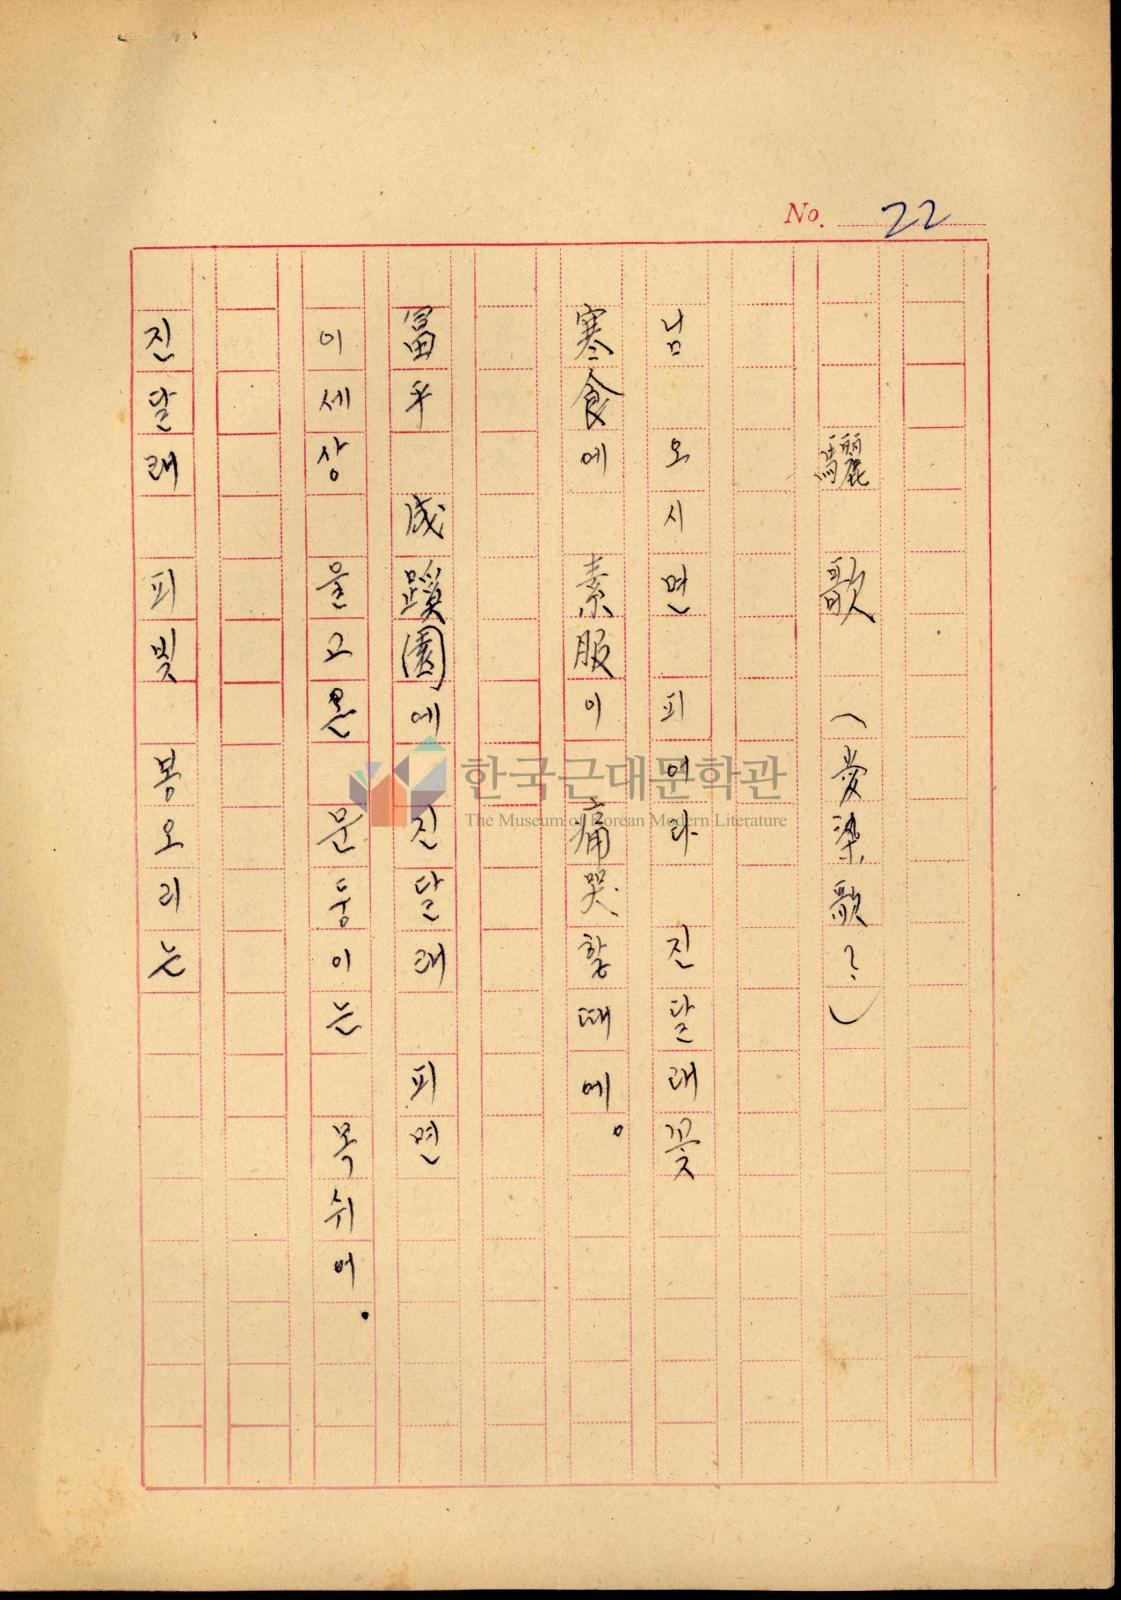 No. 22
驪 歌 (愛染歌?)
님 오시면 피어라 진달래꽃
寒食에 素服이 痛哭할때에。
富平 成蹊園에 진달래 피면
이세상 울고온 문둥이는 목쉬어.
진달래 피빛 봉오리는
한국근대문학관
The Museum of Korean Modern Literature